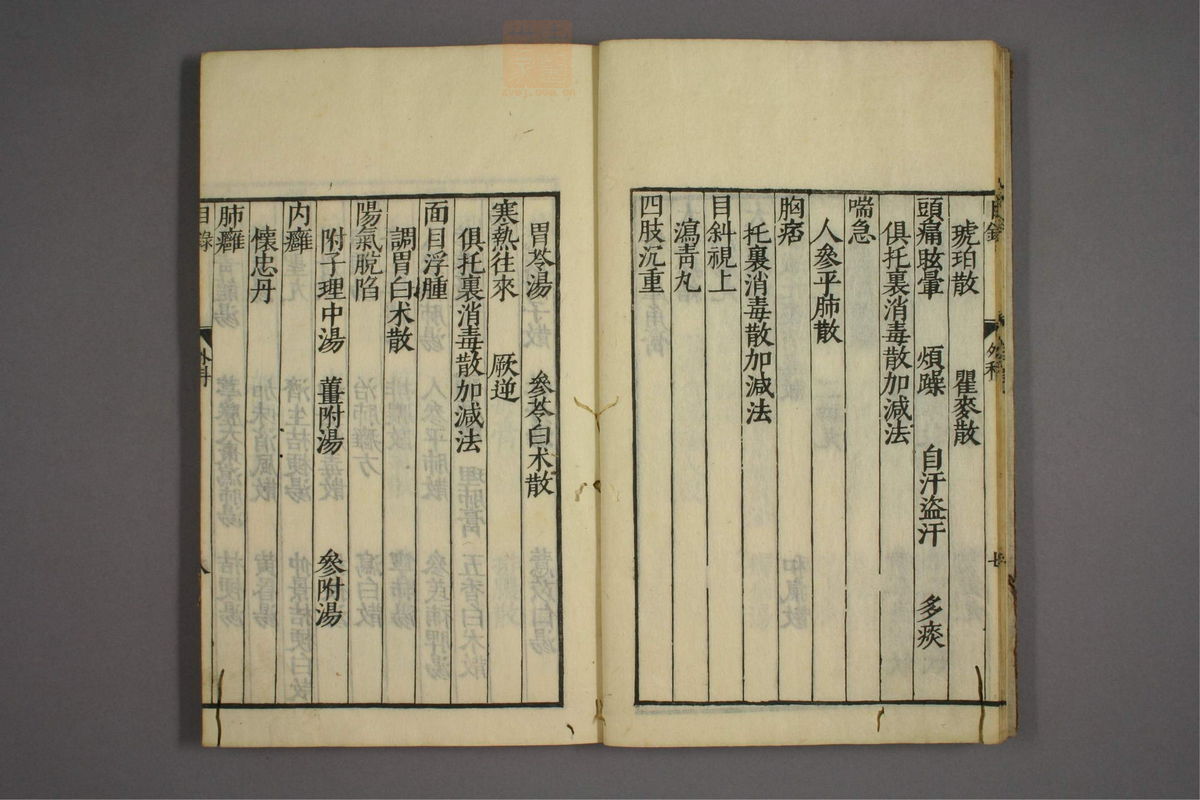 目錄 外科 七
琥珀散 瞿麥散
頭痛眩暈 煩躁 自汗盜汗 多痰
俱托裏消毒散加減法
喘急
人參平肺散
胸痞
托裏消毒散加減法
目斜視上
瀉靑丸
四肢沉重
胃苓湯 參苓白术散
寒熱往來 厥逆
俱托裏消毒散加減法
面目浮腫
調胃白术散
陽氣脫陷
附子理中湯 薑附湯 參附湯
内癰
懷忠丹
肺癰
目錄 外科 八